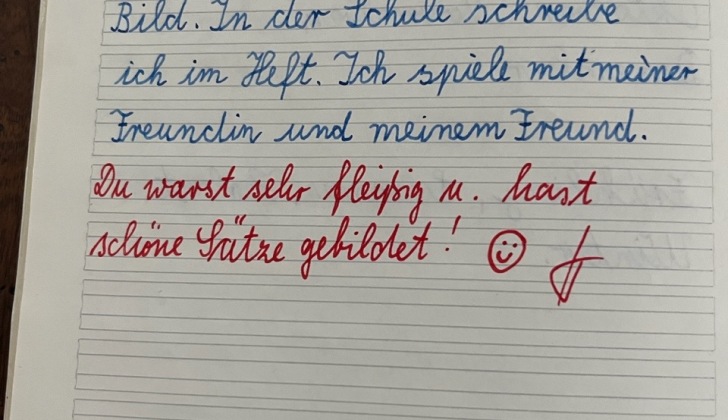 Bild. In der Schule schreibe
ich im Heft. Ich spiele mit meiner
Freundin und meinem Freund.
Du warst sehr fleißig u. hast
schöne Sätze gebildet!